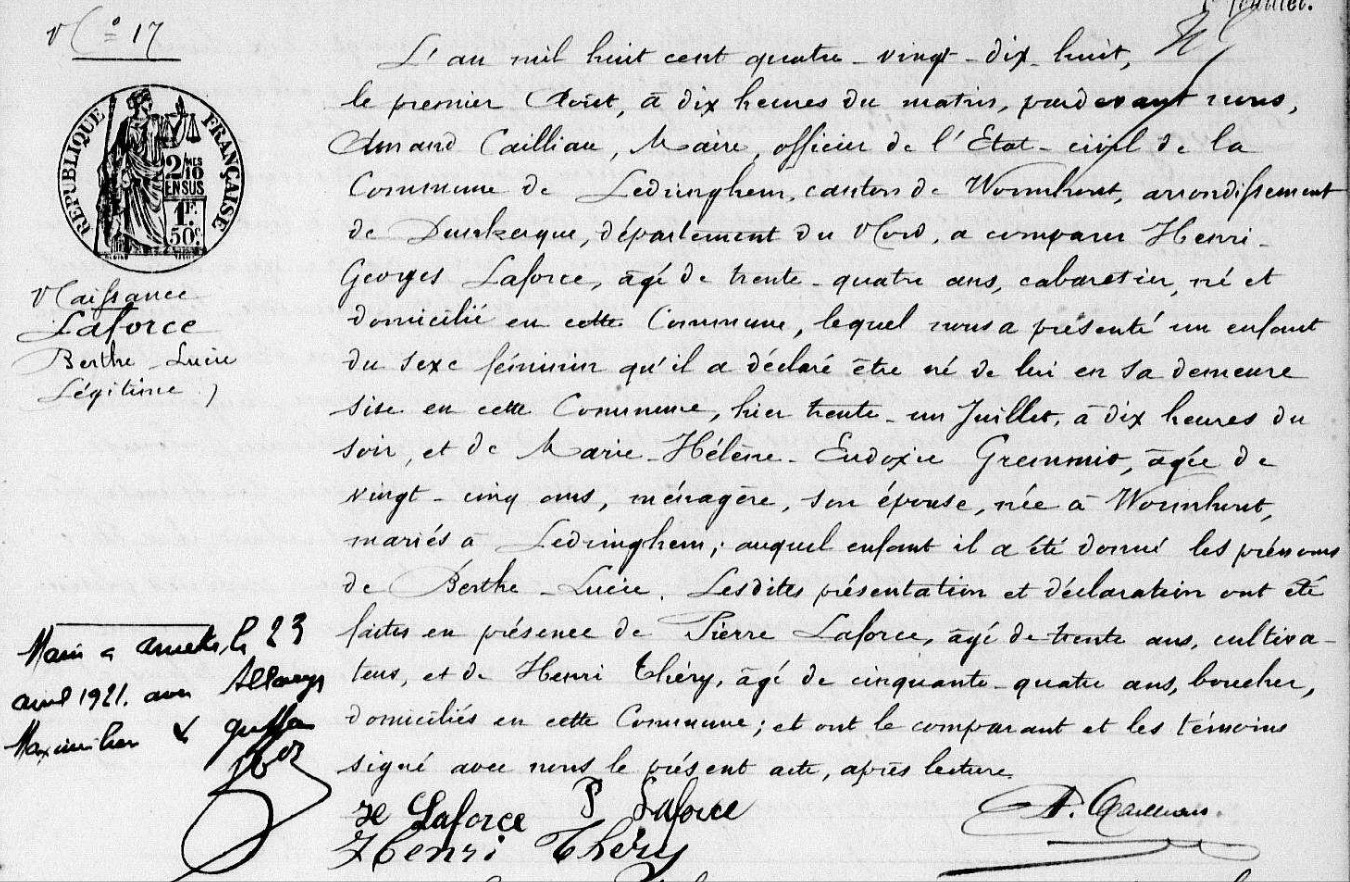 N° 17
RÉPUBLIQUE FRANÇAISE
2/10 MES
EN SUS
1F.
50c
Naissance
Laforce
Berthe-Lucie
Légitime
L'an mil huit cent quatre-vingt-dix-huit,
le premier Août, à dix heures du matin, pardevant nous,
Amand Cailliau, Maire, officier de l'Etat-civil de la
Commune de Ledringhem, canton de Wormhout, arrondissement
de Dunkerque, département du Nord, a comparu Henri-
Georges Laforce, âgé de trente-quatre ans, cabaretier, né et
domicilié en cette Commune, lequel nous a présenté un enfant
du sexe féminin qu'il a déclaré être né de lui en sa demeure
sise en cette Commune, hier trente-un Juillet, à dix heures du
soir, et de Marie-Hélène-Eudoxie, âgée de
vingt-cinq ans, ménagère, son épouse, née à Wormhout,
mariés à Ledringhem; auquel enfant il a été donné les prénoms
de Berthe-Lucie. Lesdites présentation et déclaration ont été
faites en présence de Pierre Laforce, âgé de trente ans, cultiva-
teur, et de Henri Théry, âgé de cinquante-quatre ans, boucher,
domiciliés en cette Commune; et ont le comparant et les témoins
signé avec nous le présent acte, après lecture.
le 23
avril 1921. avec
Maximilien
H Laforce P Laforce
Henri Théry
A. Cailliau.